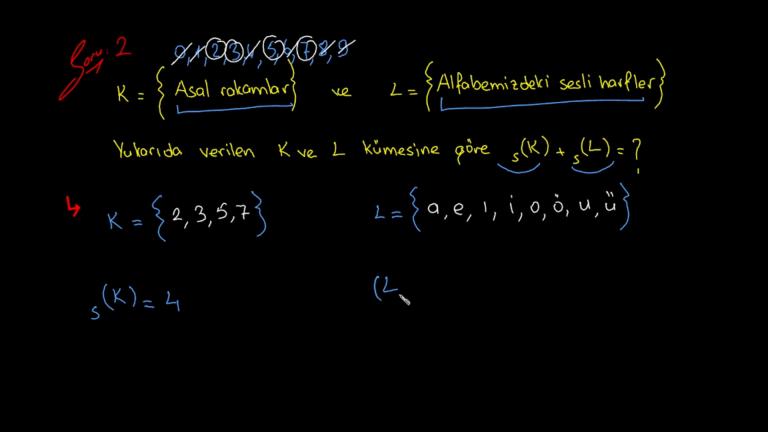 Soru. 2
0,1,2,3,4,5,6,7,8,9
K = {Asal rakamlar} ve L = {Alfabemizdeki sesli harfler}
Yukarıda verilen K ve L kümesine göre s(K) + s(L) = ?
K = {2,3,5,7} L = {a, e, ı, i, o, ö, u, ü}
s(K) = 4 (L